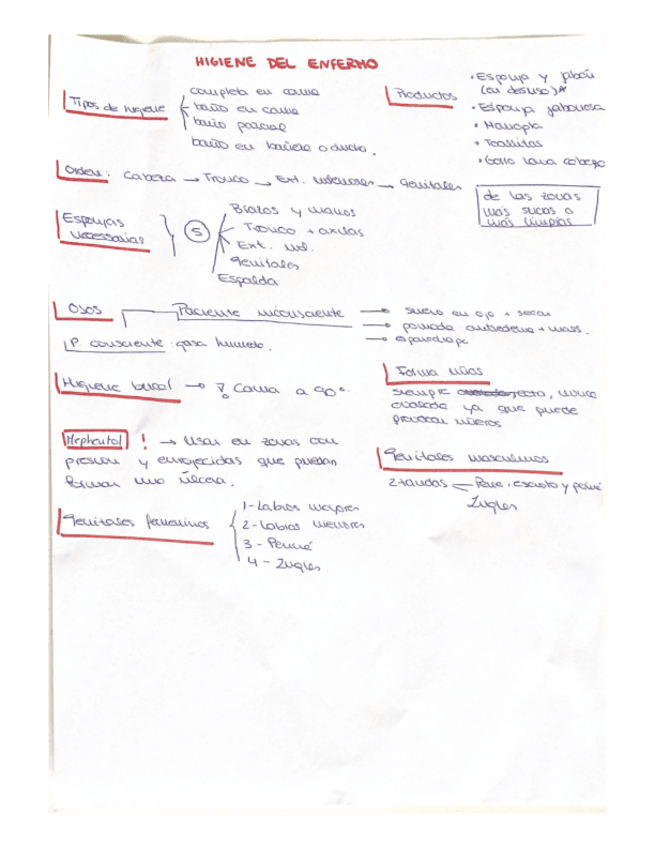 HIGIENE DEL ENFERMO
Tipos de higiene
completa en cama
baño en cama
baño parcial
baño en bañera o ducha.
Productos
• Esponja y jabón
(en desuso)*
• Esponja jabonosa
• Manopla
• Toallitas
• Gorro lava cabeza
Orden: Cabeza → Tronco → Ext. inferiores → genitales
de las zonas
mas sucas a
más limpias
Esponjas
necessarias
5
Brazos y manos
Tronco + axilas
Ext. inf.
genitales
Espalda
Ojos
Paciente inconsciente
→ suero en ojo + secar
→ pomada + mass.
→ esparadrapo
P. consciente: gasa humeda.
Higiene bucal → ! Cama a 90º.
Forma uñas
siempre recta, nunca
ya que puede
provocar
Mephentol ! → Usar en zonas con
presion y enrojecidas que puedan
formar una úlcera.
Genitales masculinos
2 tandas Pene, escroto y periné
Ingles
Genitales femeninos
1- Labios mayores
2- Labios menores
3 - Periné
4 - Ingles